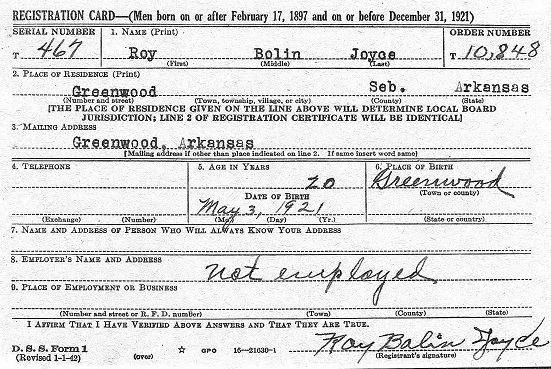 REGISTRATION CARD—(Men born on or after February 17, 1897 and on or before December 31, 1921)
SERIAL NUMBER 1. NAME (Print) ORDER NUMBER
T 467 Roy Bolin Joyce T 10,848
(First) (Middle) (Last)
2. PLACE OF RESIDENCE (Print)
Greenwood Seb. Arkansas
(Number and street) (Town, township, village, or city) (County) (State)
[THE PLACE OF RESIDENCE GIVEN ON THE LINE ABOVE WILL DETERMINE LOCAL BOARD
JURISDICTION; LINE 2 OF REGISTRATION CERTIFICATE WILL BE IDENTICAL]
3. MAILING ADDRESS
Greenwood, Arkansas
[Mailing address if other than place indicated on line 2. If same insert word same]
4. TELEPHONE 5. AGE IN YEARS 6. PLACE OF BIRTH
20 Greenwood
DATE OF BIRTH (Town or county)
May 3, 1921
(Exchange) (Number) (Mo.) (Day) (Yr.) (State or country)
7. NAME AND ADDRESS OF PERSON WHO WILL ALWAYS KNOW YOUR ADDRESS
8. EMPLOYER'S NAME AND ADDRESS
not employed
9. PLACE OF EMPLOYMENT OR BUSINESS
(Number and street or R. F. D. number) (Town) (County) (State)
I AFFIRM THAT I HAVE VERIFIED ABOVE ANSWERS AND THAT THEY ARE TRUE.
Roy Bolin Joyce
D. S. S. Form 1
(Revised 1-1-42) (over) ☆ GPO 16—21630-1 (Registrant's signature)